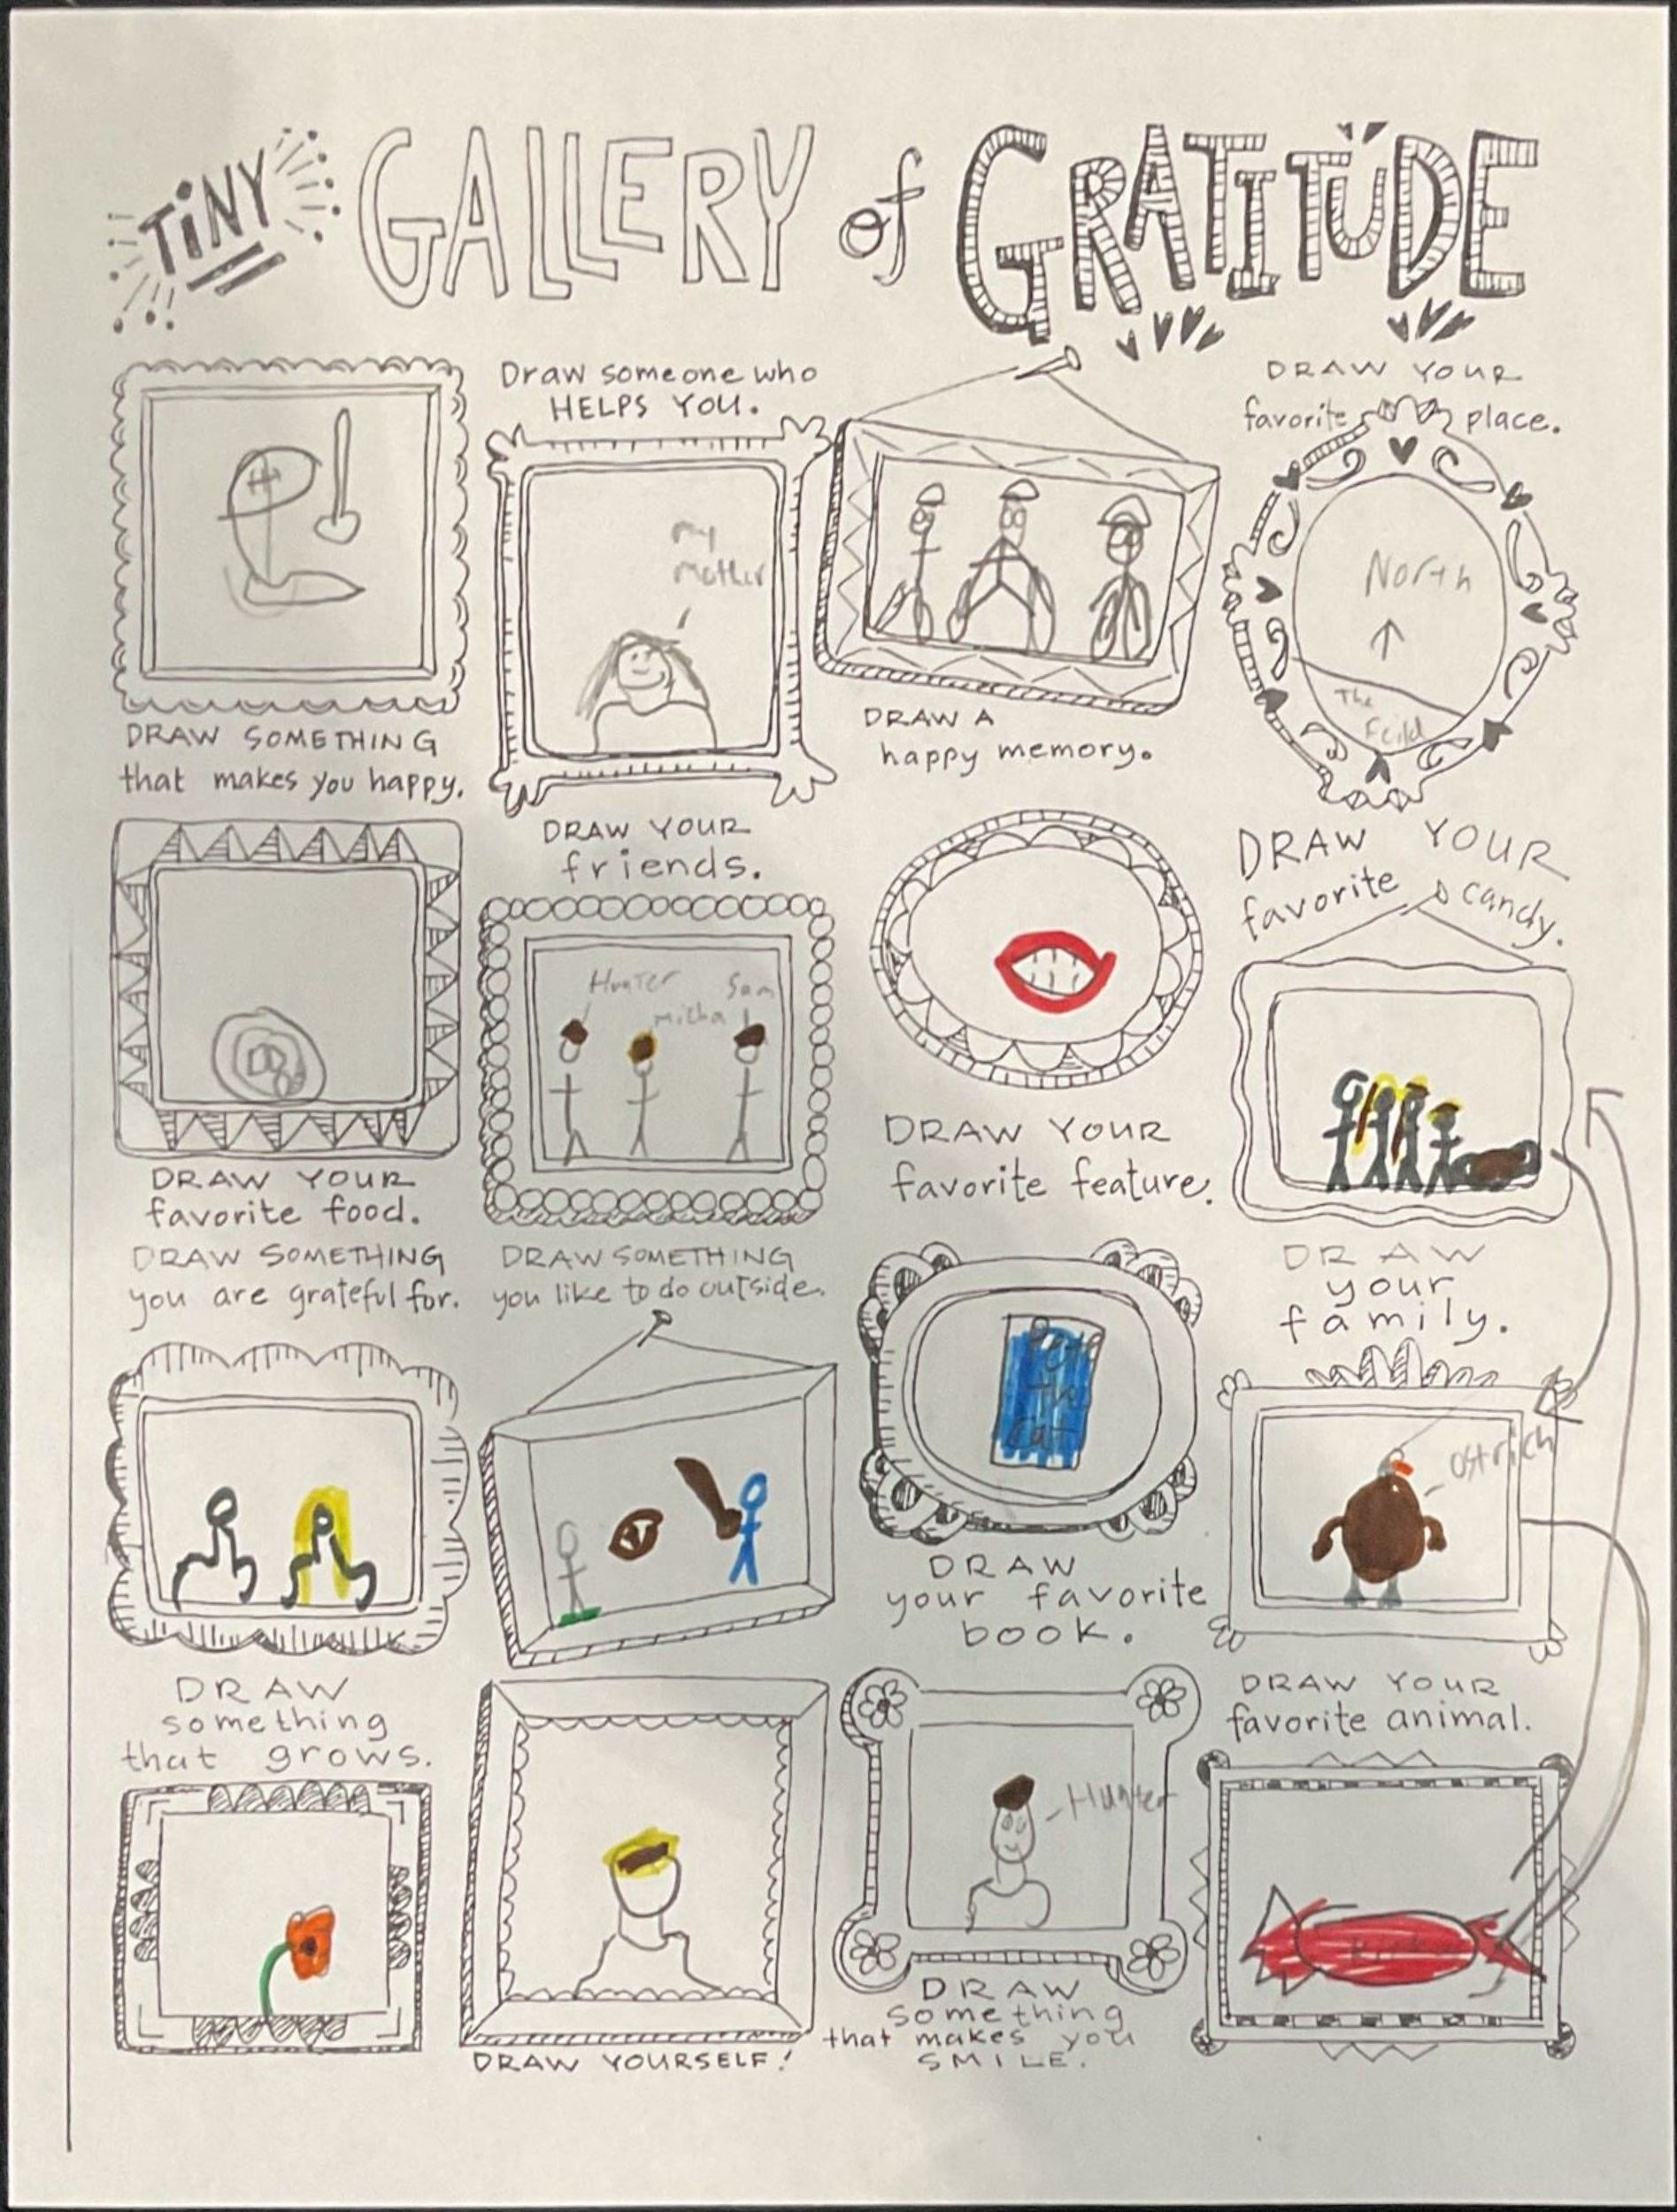 TINY GALLERY of GRATITUDE
Draw someone who
HELPS YOU.
DRAW YOUR
favorite place.
my
mother
North
The
Feild
DRAW SOMETHING
that makes you happy.
DRAW A
happy memory.
DRAW YOUR
friends.
DRAW YOUR
favorite candy.
Hunter Sam
micha
DRAW YOUR
favorite food.
DRAW YOUR
favorite feature.
DRAW SOMETHING
you are grateful for.
DRAW SOMETHING
you like to do outside.
DRAW
your
family.
Pete
the
Cat
ostrich
DRAW
your favorite
book.
DRAW
something
that grows.
DRAW YOUR
favorite animal.
Hunter
DRAW YOURSELF!
DRAW
something
that makes you
SMILE.